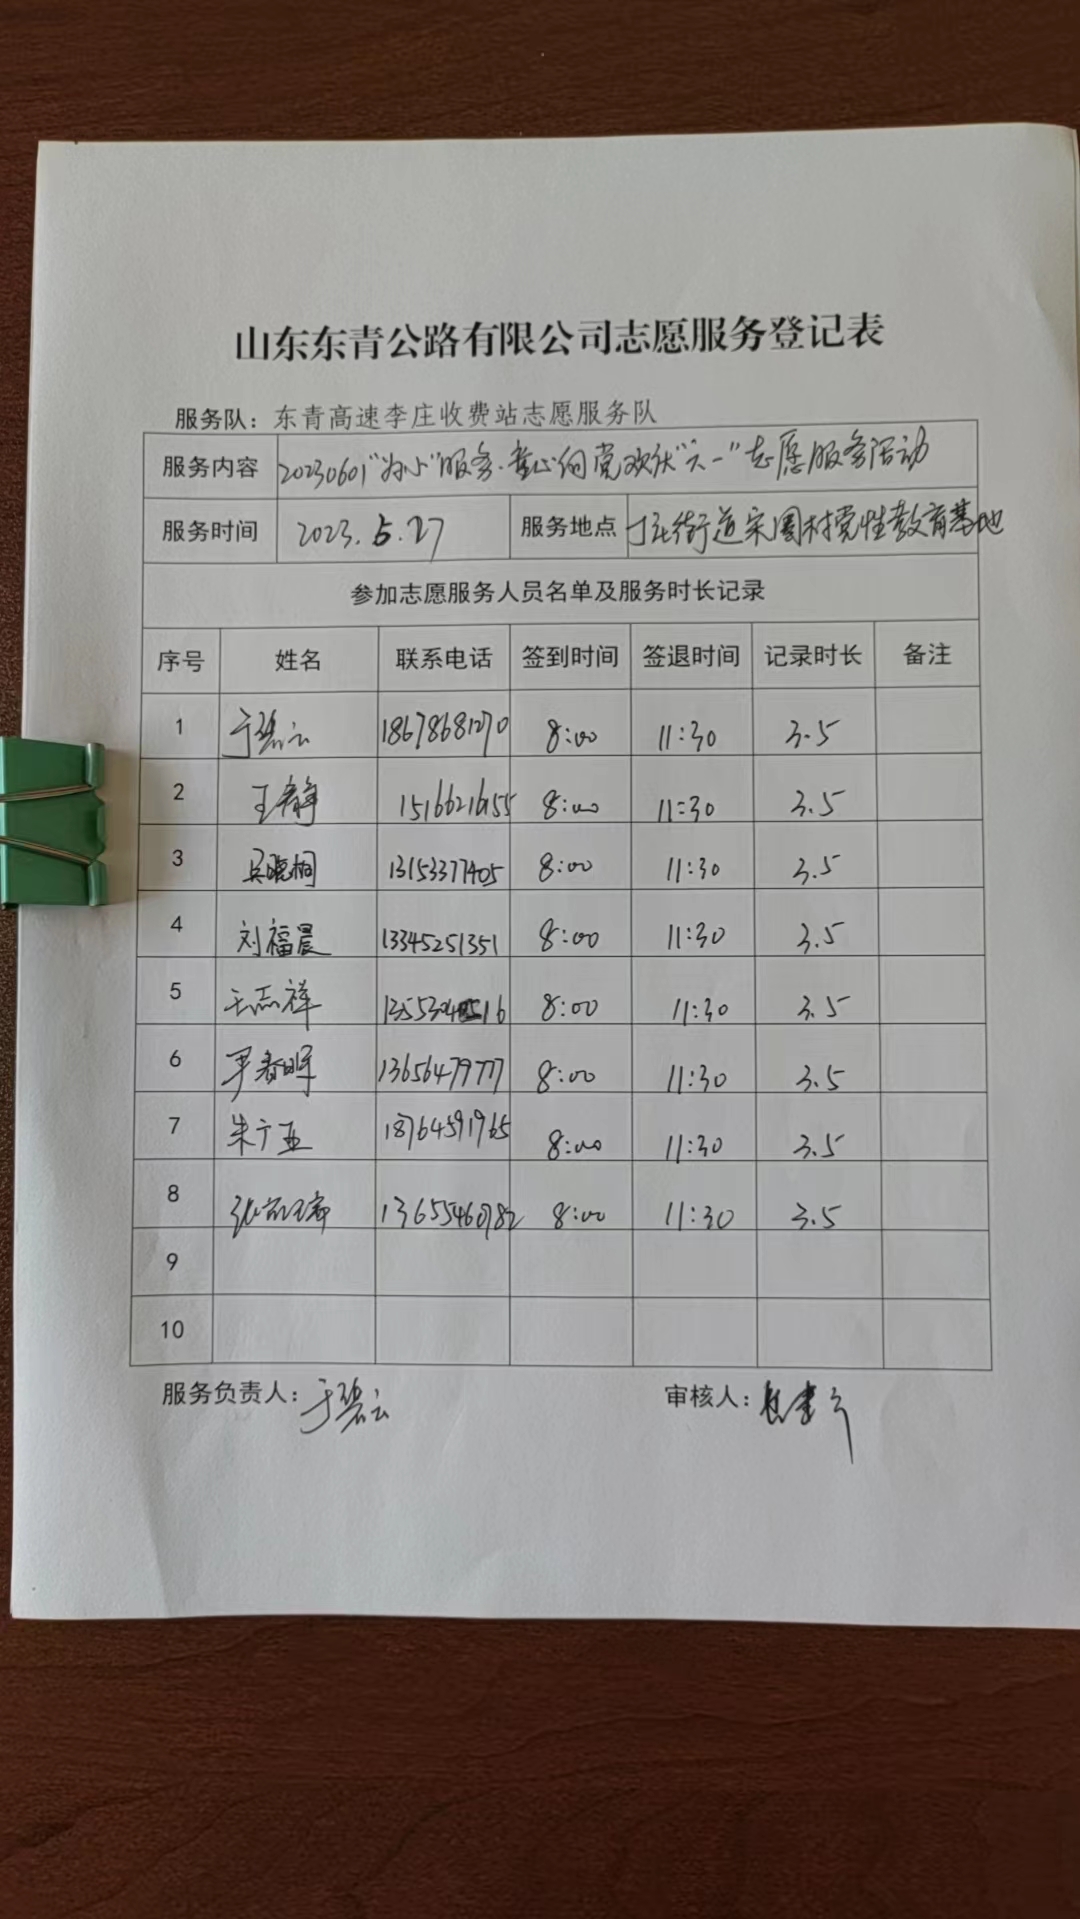 山东东青公路有限公司志愿服务登记表
服务队：东青高速李庄收费站志愿服务队
服务内容 20230601"为小"服务·童心向党欢庆"六一"志愿服务活动
服务时间 2023.5.27 服务地点 丁庄街道宋圈村党性教育基地
参加志愿服务人员名单及服务时长记录
序号 姓名 联系电话 签到时间 签退时间 记录时长 备注
1 于碧云 18678681270 8:00 11:30 3.5
2 王静 15166216155 8:00 11:30 3.5
3 吴晓桐 13153377405 8:00 11:30 3.5
4 刘福晨 13345251351 8:00 11:30 3.5
5 王志祥 8:00 11:30 3.5
6 严春晖 13656479777 8:00 11:30 3.5
7 朱广亚 18764591965 8:00 11:30 3.5
8 13655460782 8:00 11:30 3.5
9
10
服务负责人：于碧云 审核人：